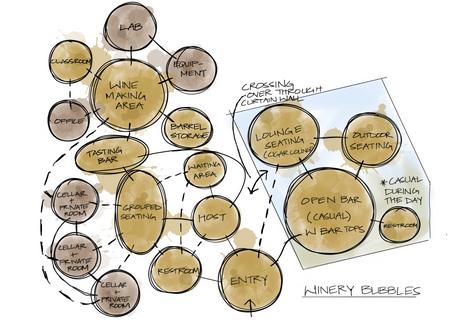 LAB
CLASSROOM
EQUIP-
MENT
WINE
MAKING
AREA
OFFICE
BARREL
STORAGE
CROSSING
OVER THROUGH
CURTAIN WALL
TASTING
BAR
WAITING
AREA
LOUNGE
SEATING
(CIGAR LOUNGE)
OUTDOOR
SEATING
CELLAR
+
PRIVATE
ROOM
GROUPED
SEATING
HOST
OPEN BAR
(CASUAL)
W BAR TOPS
* CASUAL
DURING
THE DAY
RESTROOM
CELLAR
+
PRIVATE
ROOM
RESTROOM
ENTRY
CELLAR
+
PRIVATE
ROOM
WINERY BUBBLES